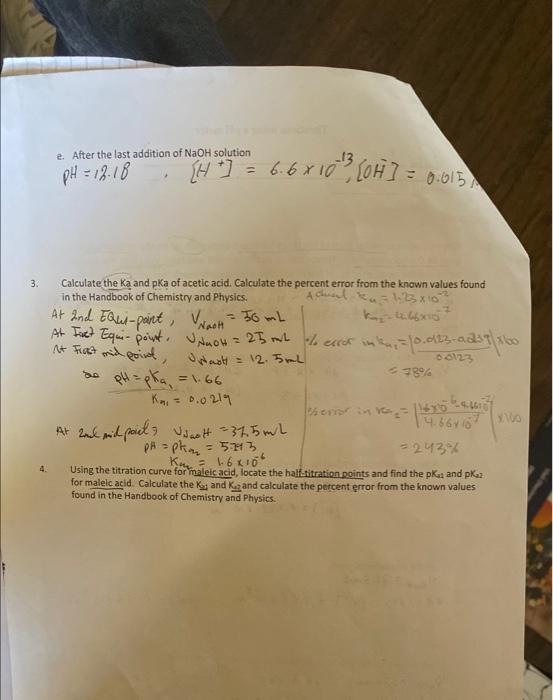 e. After the last addition of NaOH solution
pH = 12.18 , [H+] = 6.6 x 10^-13, [OH-] = 0.015
3. Calculate the Ka and pKa of acetic acid. Calculate the percent error from the known values found
in the Handbook of Chemistry and Physics.
Actual Ka1 = 1.23 x 10^-2
Ka2 = 4.66x10^-7
At 2nd Equi-point, VNaOH = 50 mL
At First Equi-point, VNaOH = 25 mL
At First mid point, VNaOH = 12.5 mL
so pH = pKa1 = 1.66
Ka1 = 0.0219
% error in Ka1 = |0.0123-0.0219| x100
0.0123
= 78%
At 2nd mid point, VNaOH = 37.5 mL
pH = pKa2 = 5.793
Ka2 = 1.6 x 10^-6
% error in Ka2 = |1.6x10^-6-4.66x10^-7| x100
4.66x10^-7
= 243%
4. Using the titration curve for maleic acid, locate the half-titration points and find the pKa1 and pKa2
for maleic acid. Calculate the Ka1 and Ka2 and calculate the percent error from the known values
found in the Handbook of Chemistry and Physics.